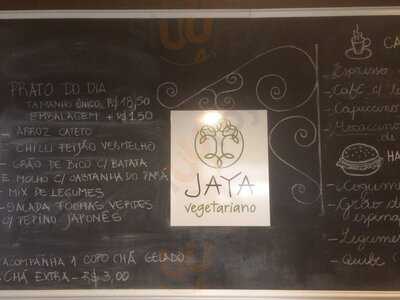 PRATO DO DIA
TAMANHO ÚNICO R$ 18,50
EMBALAGEM + R$ 1,50
- ARROZ CATETO
- CHILLI FEIJÃO VERMELHO
- GRÃO DE BICO C/ BATATA
E MOLHO C/ CASTANHA DO PARÁ
- MIX DE LEGUMES
- SALADA FOLHAS VERDES
C/ PEPINO JAPONÊS
ACOMPANHA 1 COPO CHÁ GELADO
CHÁ EXTRA - R$ 3,00
JAYA
vegetariano
CA
- Espresso
- Café c/ le
- Capuccino
- Mocaccino
de
HA
- Cogume
- Grão de
espina
- Legume
- Quibe (